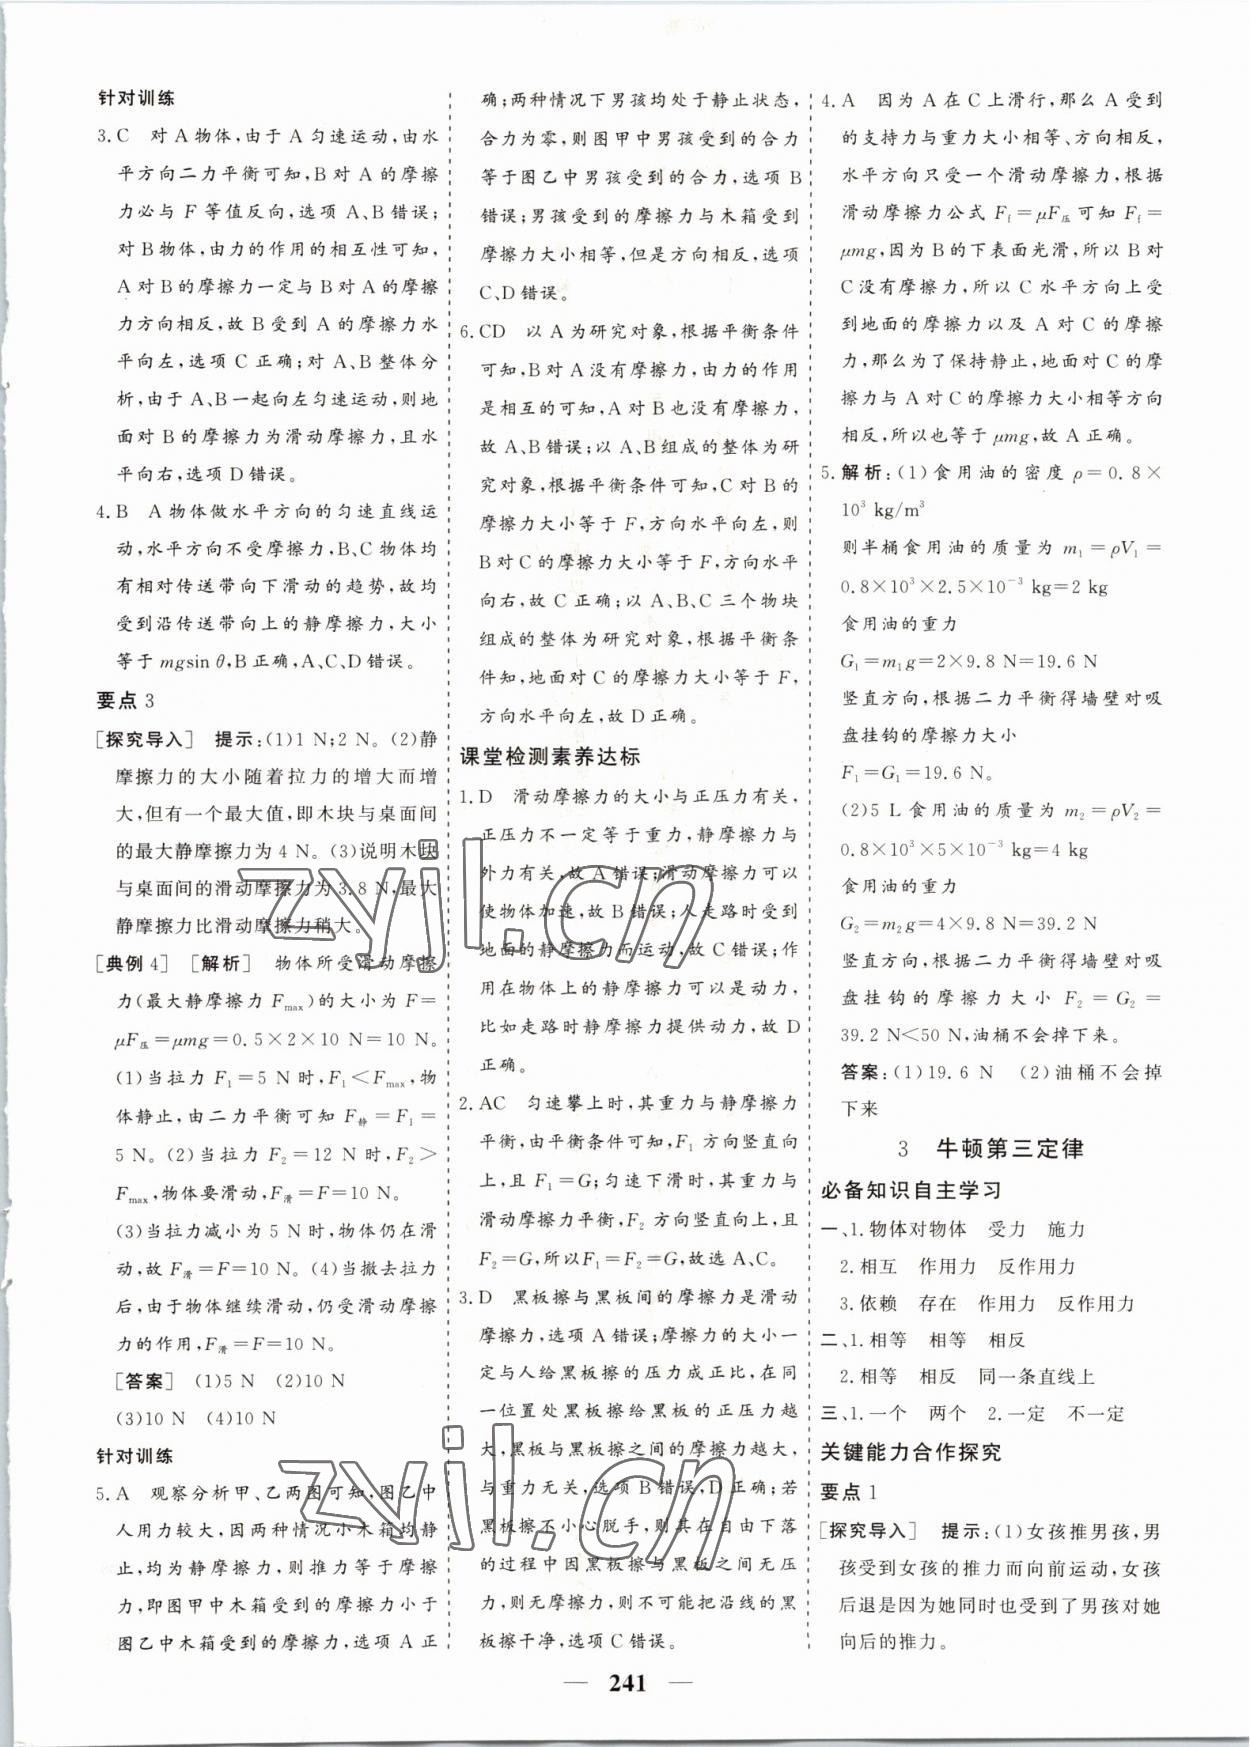 针对训练
3.C 对A物体,由于A匀速运动,由水
平方向二力平衡可知,B对A的摩擦
力必与F等值反向,选项A、B错误;
对B物体,由力的作用的相互性可知,
A对B的摩擦力一定与B对A的摩擦
力方向相反,故B受到A的摩擦力水
平向左,选项C正确;对A、B整体分
析,由于A、B一起向左匀速运动,则地
面对B的摩擦力为滑动摩擦力,且水
平向右,选项D错误。
4.B A物体做水平方向的匀速直线运
动,水平方向不受摩擦力,B、C物体均
有相对传送带向下滑动的趋势,故均
受到沿传送带向上的静摩擦力,大小
等于mgsin θ,B正确,A、C、D错误。
要点3
[探究导入] 提示:(1)1 N;2 N。(2)静
摩擦力的大小随着拉力的增大而增
大,但有一个最大值,即木块与桌面间
的最大静摩擦力为4 N。(3)说明木块
与桌面间的滑动摩擦力为3.8 N,最大
静摩擦力比滑动摩擦力稍大。
[典例4] [解析] 物体所受滑动摩擦
力(最大静摩擦力Fmax)的大小为F=
μF压=μmg=0.5×2×10 N=10 N。
(1)当拉力F₁=5 N时,F₁<Fmax,物
体静止,由二力平衡可知F静=F₁=
5 N。(2)当拉力F₂=12 N时,F₂>
Fmax,物体要滑动,F滑=F=10 N。
(3)当拉力减小为5 N时,物体仍在滑
动,故F滑=F=10 N。(4)当撤去拉力
后,由于物体继续滑动,仍受滑动摩擦
力的作用,F滑=F=10 N。
[答案] (1)5 N (2)10 N
(3)10 N (4)10 N
针对训练
5.A 观察分析甲、乙两图可知,图乙中
人用力较大,因两种情况小木箱均静
止,均为静摩擦力,则推力等于摩擦
力,即图甲中木箱受到的摩擦力小于
图乙中木箱受到的摩擦力,选项A正
确;两种情况下男孩均处于静止状态,
合力为零,则图甲中男孩受到的合力
等于图乙中男孩受到的合力,选项B
错误;男孩受到的摩擦力与木箱受到
的摩擦力大小相等,但是方向相反,选项
C、D错误。
6.CD 以A为研究对象,根据平衡条件
可知,B对A没有摩擦力,由力的作用
是相互的可知,A对B也没有摩擦力,
故A、B错误;以A、B组成的整体为研
究对象,根据平衡条件可知,C对B的
摩擦力大小等于F,方向水平向左,则
B对C的摩擦力大小等于F,方向水平
向右,故C正确;以A、B、C三个物块
组成的整体为研究对象,根据平衡条
件知,地面对C的摩擦力大小等于F,
方向水平向左,故D正确。
课堂检测素养达标
1.D 滑动摩擦力的大小与正压力有关,
正压力不一定等于重力,静摩擦力与
外力有关,故A错误;滑动摩擦力可以
使物体加速,故B错误;人走路时受到
地面的静摩擦力而运动,故C错误;作
用在物体上的静摩擦力可以是动力,
比如走路时静摩擦力提供动力,故D
正确。
2.AC 匀速攀上时,其重力与静摩擦力
平衡,由平衡条件可知,F₁方向竖直向
上,且F₁=G;匀速下滑时,其重力与
滑动摩擦力平衡,F₂方向竖直向上,且
F₂=G,所以F₁=F₂=G,故选A、C。
3.D 黑板擦与黑板间的摩擦力是滑动
摩擦力,选项A错误;摩擦力的大小一
定与人给黑板擦的压力成正比,在同
一位置处黑板擦给黑板的正压力越
大,黑板与黑板擦之间的摩擦力越大,
与重力无关,选项B错误,D正确;若
黑板擦不小心脱手,则其在自由下落
的过程中因黑板擦与黑板之间无压
力,则无摩擦力,则不可能把沿线的黑
板擦干净,选项C错误。
4.A 因为A在C上滑行,那么A受到
的支持力与重力大小相等、方向相反,
水平方向只受一个滑动摩擦力,根据
滑动摩擦力公式Ff=μF压可知Ff=
μmg,因为B的下表面光滑,所以B对
C没有摩擦力,所以C水平方向上受
到地面的摩擦力以及A对C的摩擦
力,那么为了保持静止,地面对C的摩
擦力与A对C的摩擦力大小相等方向
相反,所以也等于μmg,故A正确。
5.解析:(1)食用油的密度ρ=0.8×
10³ kg/m³
则半桶食用油的质量为m₁=ρV₁=
0.8×10³×2.5×10⁻³ kg=2 kg
食用油的重力
G₁=m₁g=2×9.8 N=19.6 N
竖直方向,根据二力平衡得墙壁对吸
盘挂钩的摩擦力大小
F₁=G₁=19.6 N。
(2)5 L食用油的质量为m₂=ρV₂=
0.8×10³×5×10⁻³ kg=4 kg
食用油的重力
G₂=m₂g=4×9.8 N=39.2 N
竖直方向,根据二力平衡得墙壁对吸
盘挂钩的摩擦力大小F₂=G₂=
39.2 N<50 N,油桶不会掉下来。
答案:(1)19.6 N (2)油桶不会掉
下来
3 牛顿第三定律
必备知识自主学习
一、1.物体对物体 受力 施力
2.相互 作用力 反作用力
3.依赖 存在 作用力 反作用力
二、1.相等 相等 相反
2.相等 相反 同一条直线上
三、1.一个 两个 2.一定 不一定
关键能力合作探究
要点1
[探究导入] 提示:(1)女孩推男孩,男
孩受到女孩的推力而向前运动,女孩
后退是因为她同时也受到了男孩对她
向后的推力。
— 241 —
zyjl.cn
zyjl.cn